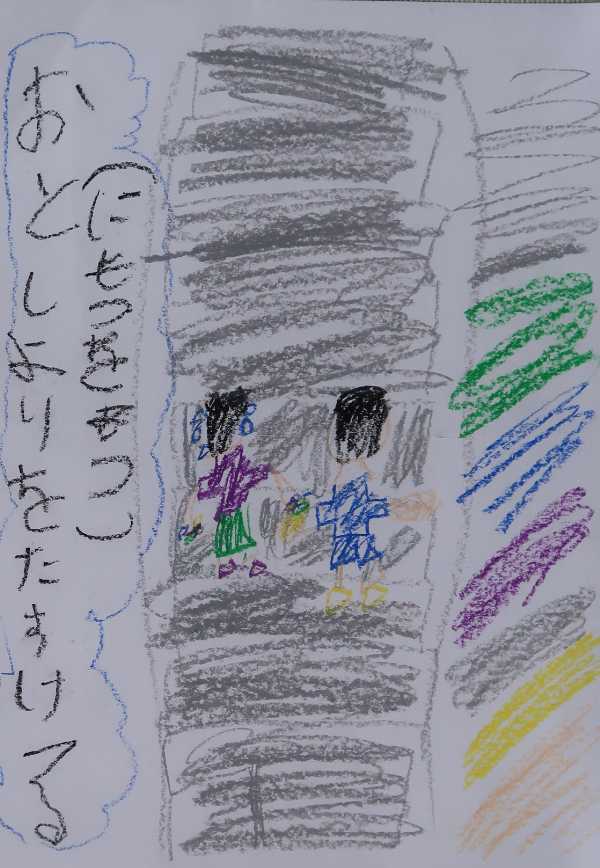 おとしよりをたすける
(にもつをもつ)